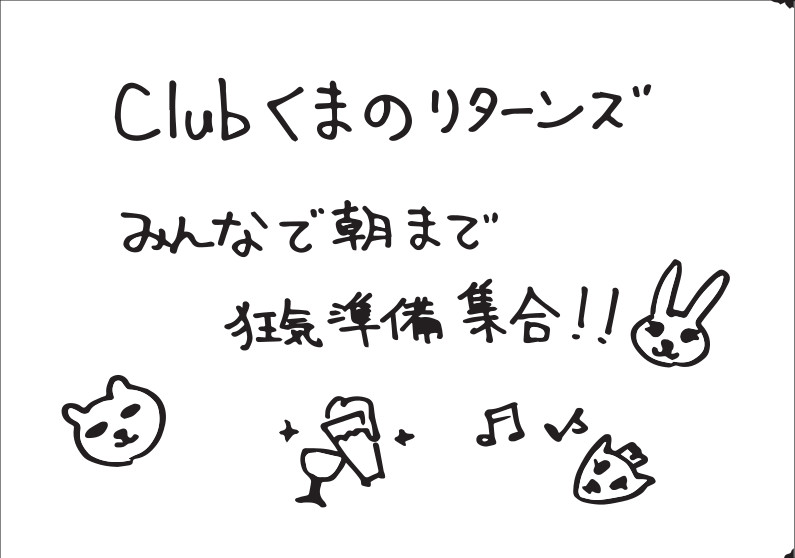 Clubくまのリターンズ
みんなで朝まで
狂気準備集合!!